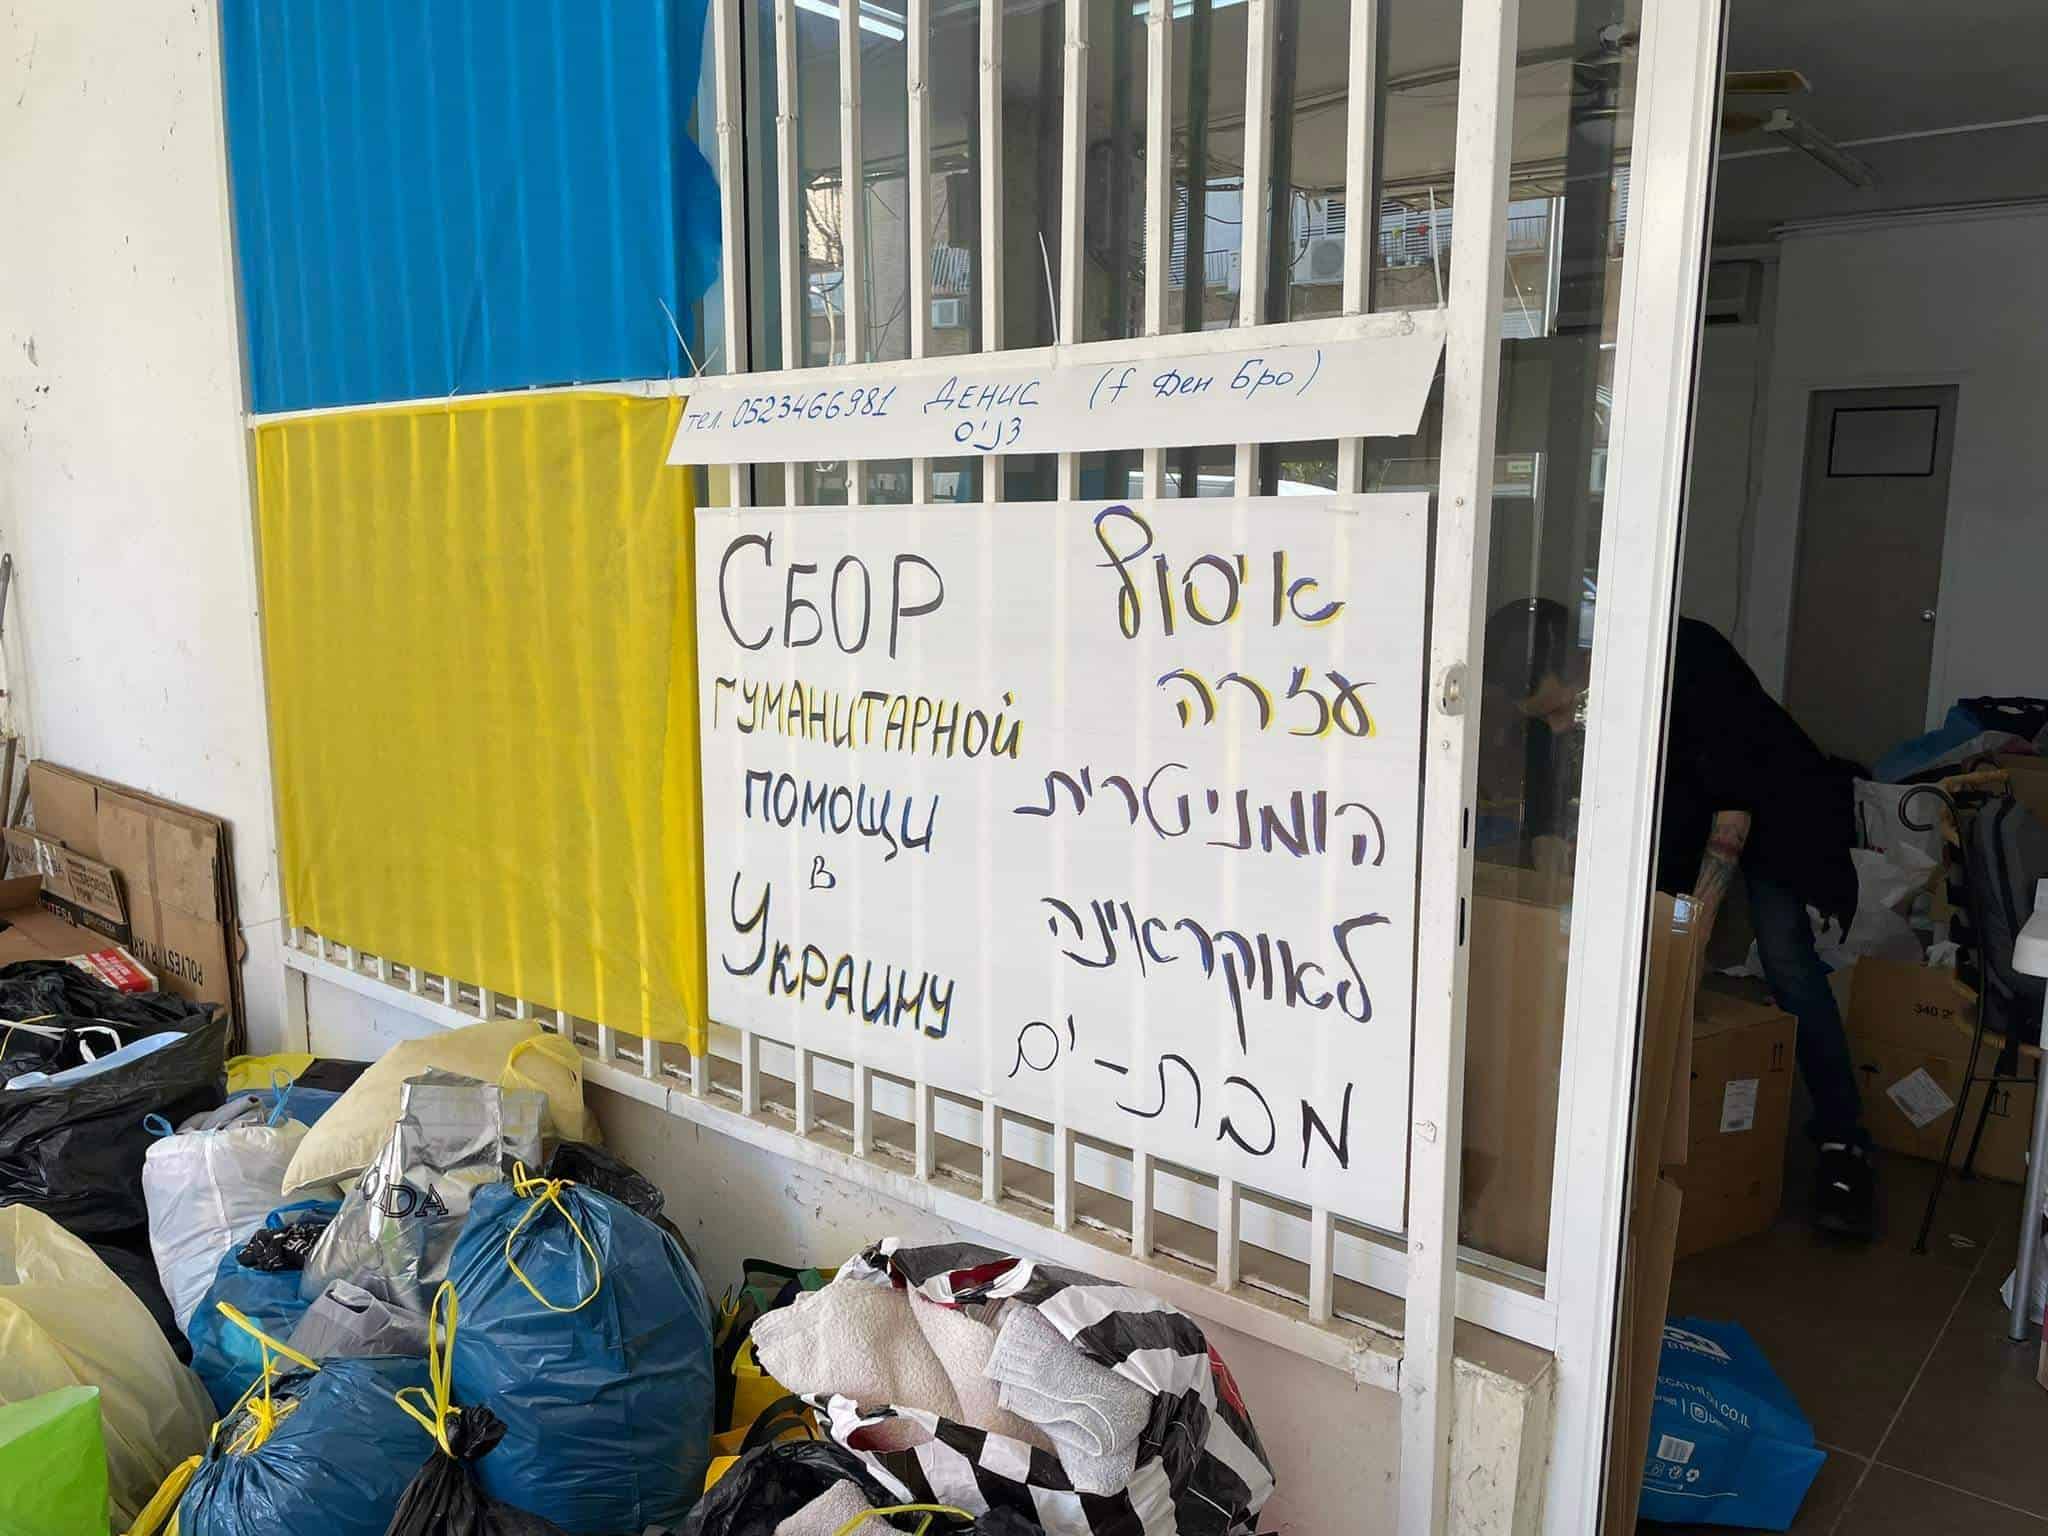 тел. 0523466981 ДЕНИС (f Ден Бро)
דניס
СБОР
ГУМАНИТАРНОЙ
ПОМОЩИ
В
УКРАИНУ
איסוף
עזרה
הומניטרית
לאוקראינה
מבת-ים
POLYEST R YAR
340 2